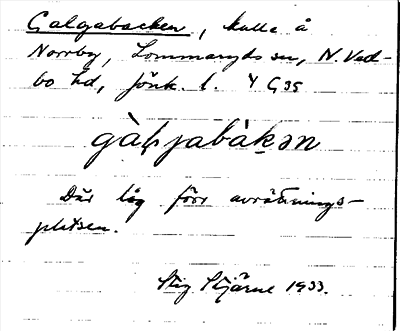 Galgabacken, kulle å
Norrby, Lommaryds sn, N. Ved-
bo hd, Jönk. l. Y G35
gàḷjabàkən
Där låg förr avrättnings-
platsen.
Stig Stjärne 1933.